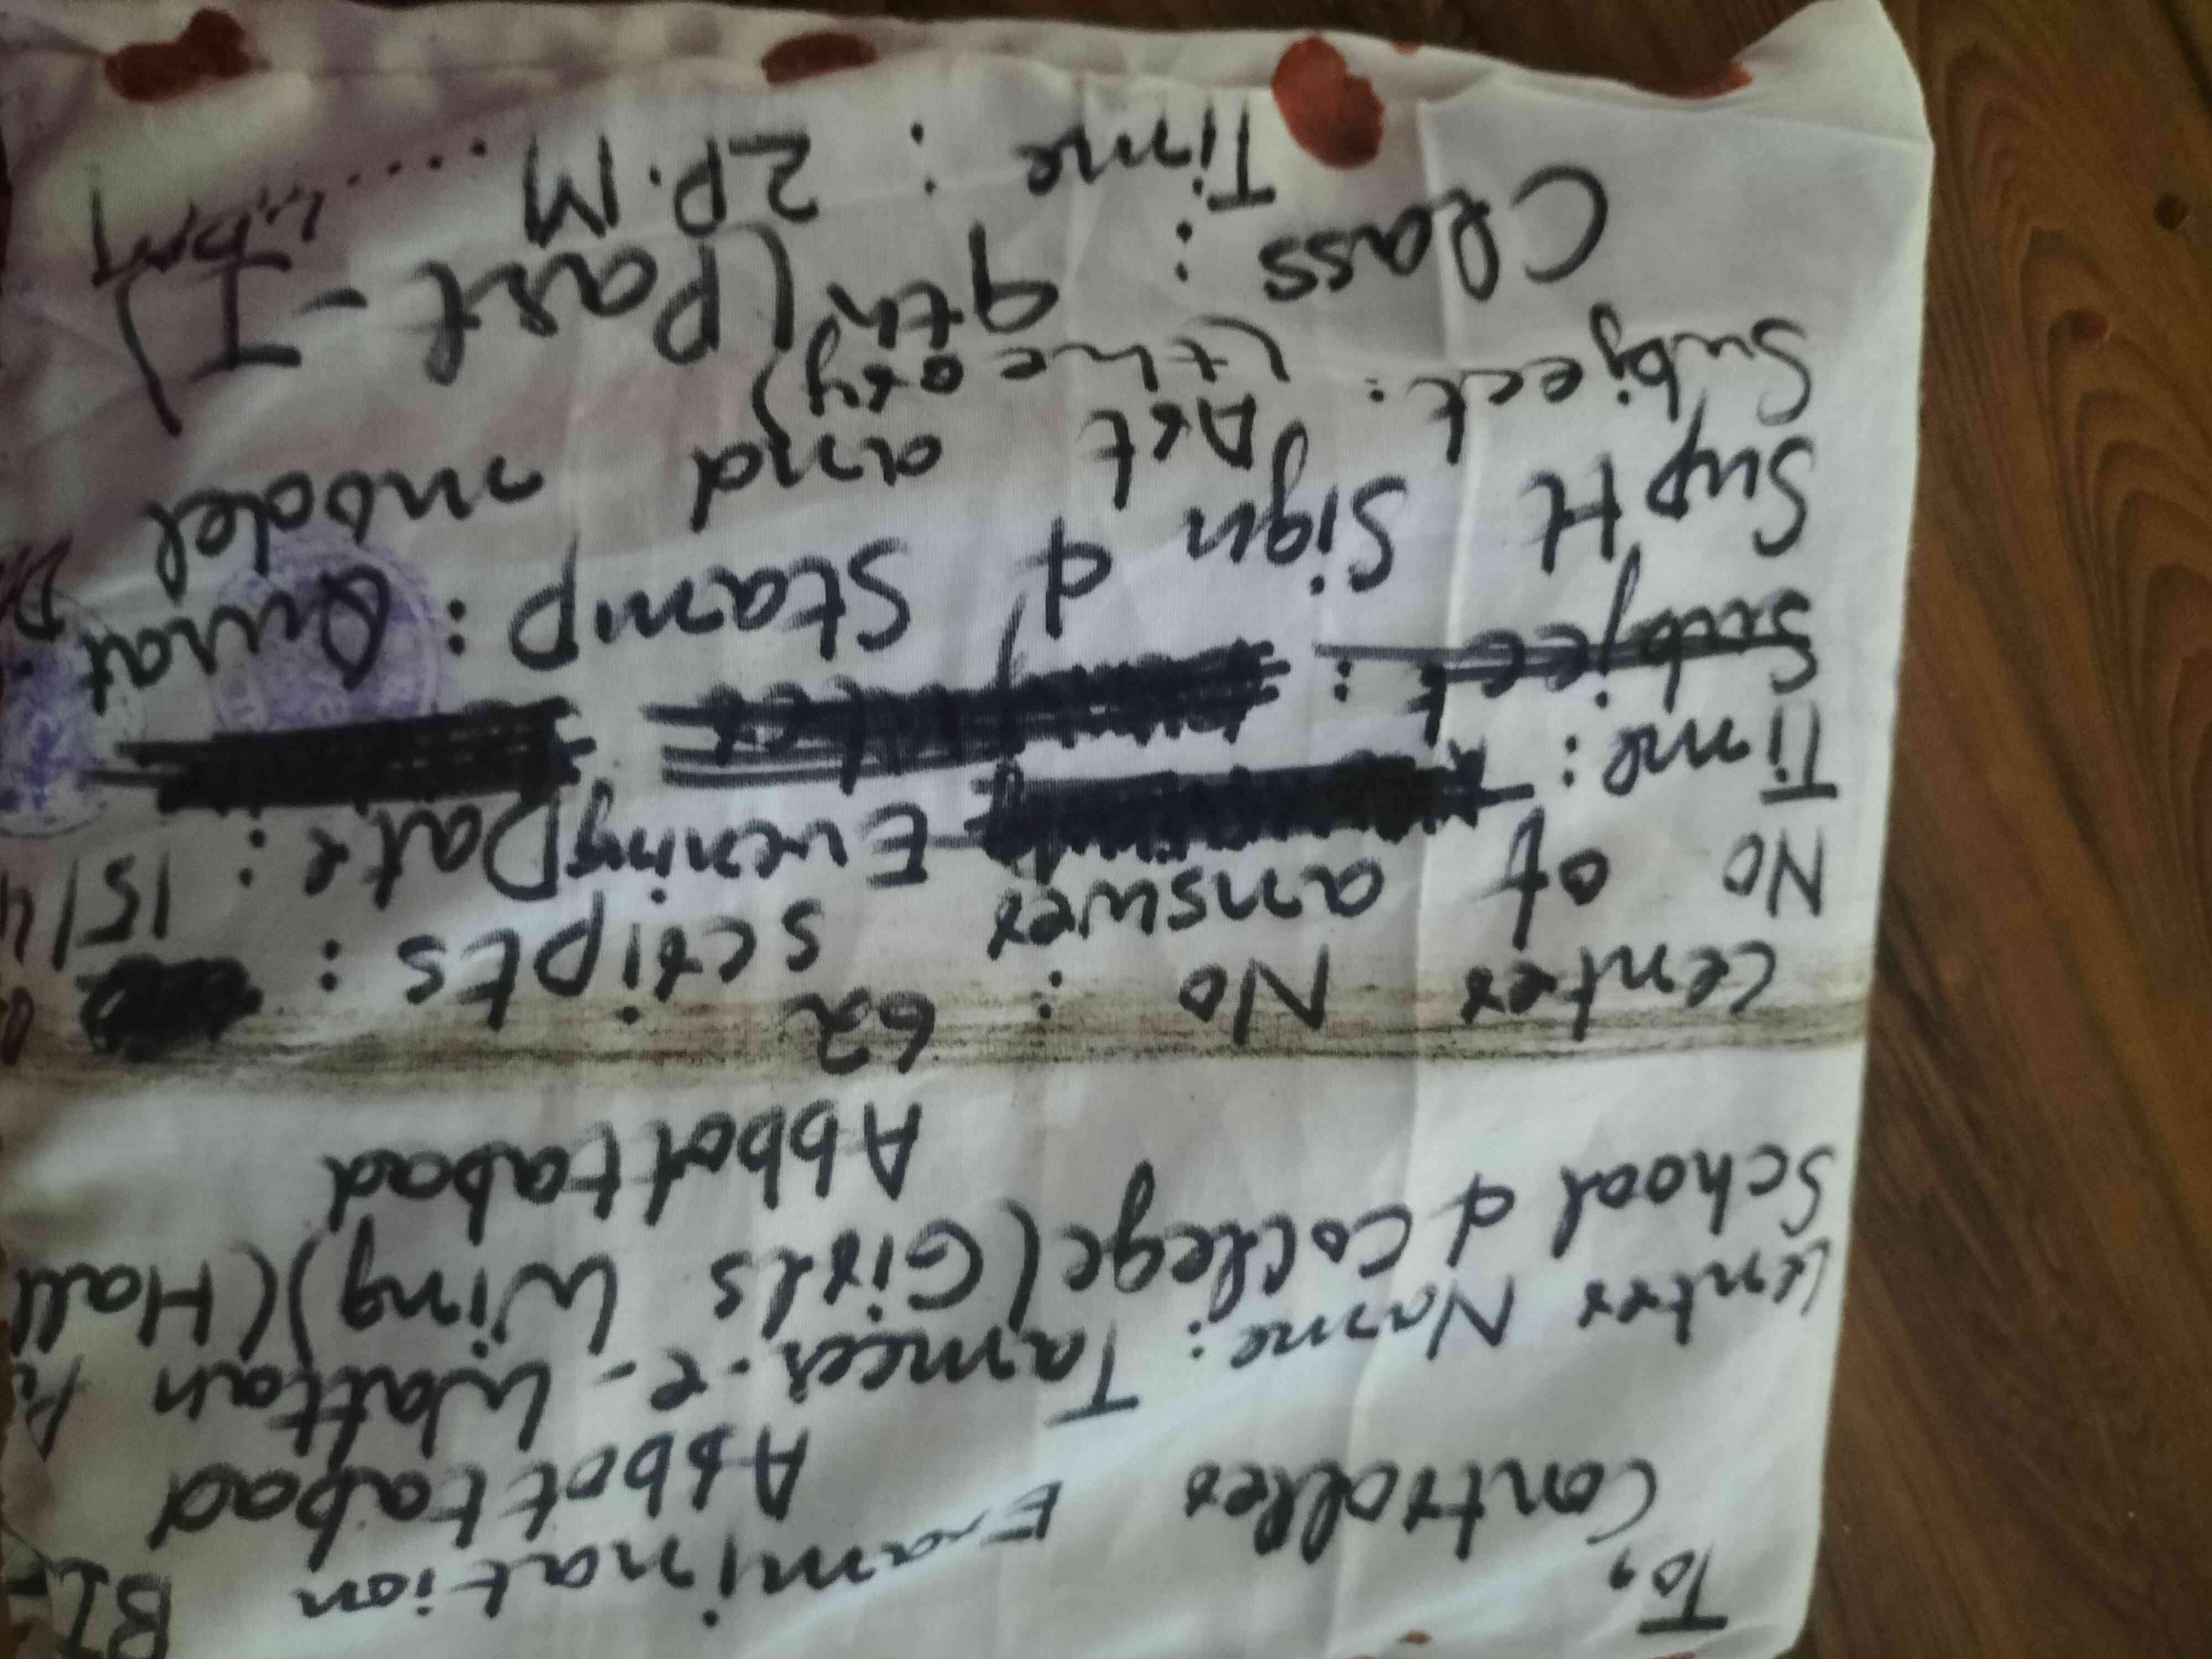 To,
Controller Examination BI
Abbottabad
Center Name: Tameer-e-Wattan
School & College (Girls Wing) (Hall
Abbottabad
Center No : 62
No of answer scripts :
Time: Evening Date: 15/4
Subject :
Sup tt Sign & Stamp : Qurat
Subject: Art and model
(theory)
Class : 9th (Part - I)
Time : 2P.M .....